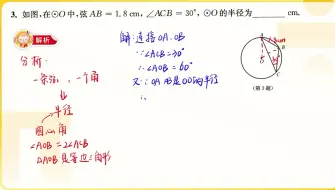 3. 如图,在⊙O中,弦AB=1.8cm,∠ACB=30°,⊙O的半径为 cm.
解析
分析:
一条弦,一个角
半径
圆心角
∠AOB=2∠ACB
△AOB是等边三角形
解:连接OA.OB
∵∠ACB=30°
∴∠AOB=60°
又∵OA.OB是⊙O的半径
∴
A
1.8cm
B
O
C
(第3题)